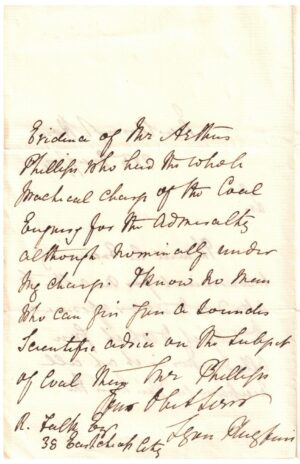 Evidence of Mr Arthur
Phillips who had the whole
practical charge of the Coal
Enquiry for the Admiralty
although nominally under
my charge. I know no man
who can give you a sounder
Scientific advice on the subject
of Coal than Mr Phillips
Your Obed Servt
Lyon Playfair
R. Falk Esq
38 Eastcheap City